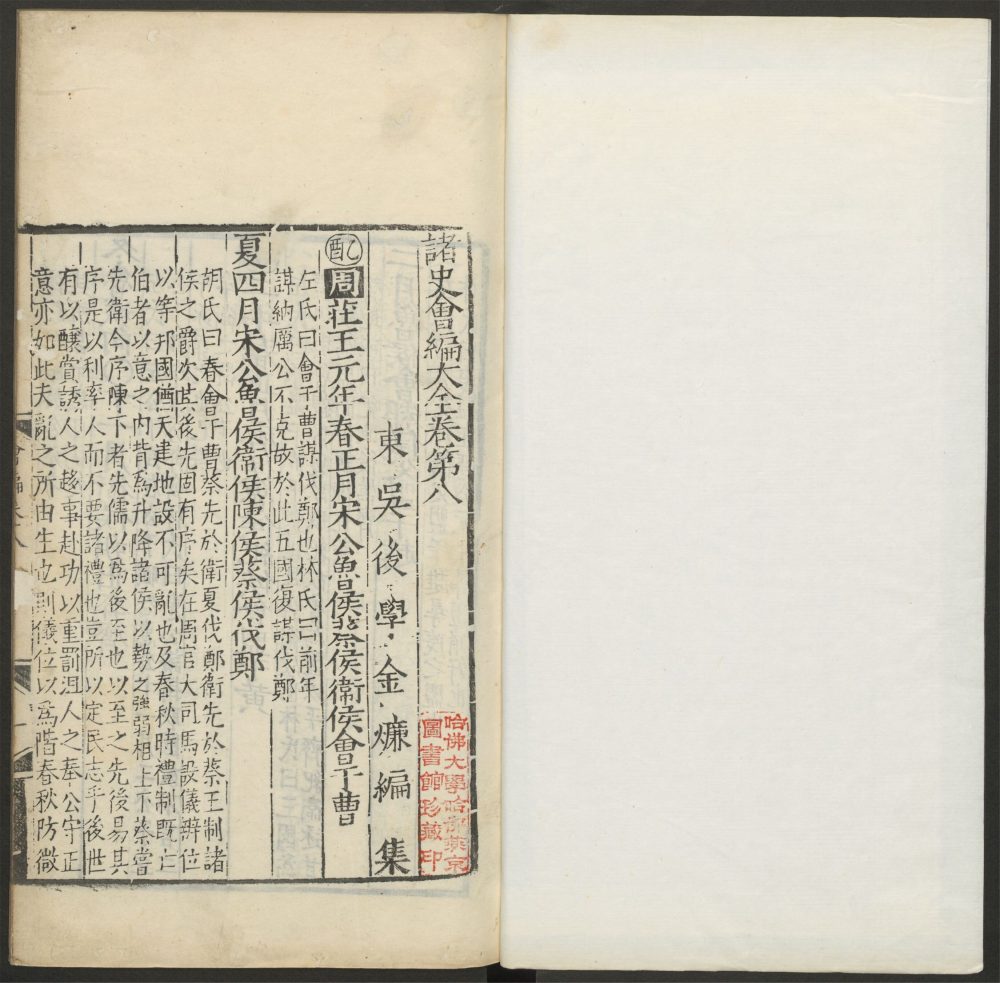 諸史會編大全卷第八
東吳後學金燫編集
乙酉 周莊王元年春正月宋公魯侯蔡侯衞侯會于曹
左氏曰會于曹謀伐鄭也林氏曰前年
謀納厲公不克故於此五國復謀伐鄭
夏四月宋公魯侯衞侯陳侯蔡侯伐鄭
胡氏曰春會于曹蔡先於衛夏伐鄭衛先於蔡王制諸
侯之爵次其後先固有序矣在周官大司馬設儀辨位
以等邦國猶天建地設不可亂也及春秋時禮制既亡
伯者以意之內背爲升降諸侯以勢之強弱相上下蔡嘗
先衛今序陳下者先儒以爲後至也以至之先後易其
序是以利率人而不要諸禮也豈所以定民志乎後世
有以釀賞誘人之趍事赴功以重罰沮人之奉公守正
意亦如此夫亂之所由生也則儀位以爲階春秋防微
會編卷八
一
哈佛大學哈佛燕京
圖書館珍藏印